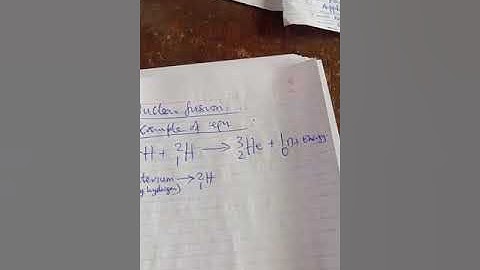 Nuclear fusion
Example of eqn :
H + ²₁H → ³₂He + ¹₀n + Energy
terium → ²₁H
hydrogen)